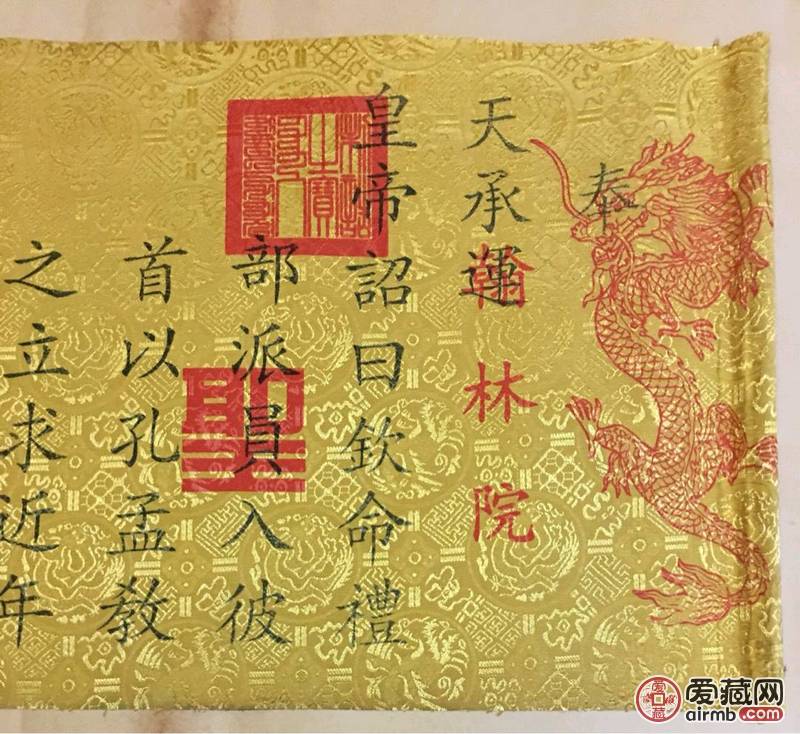 奉
天承運
皇帝詔曰欽命禮
部派員入彼
首以孔孟教
之立求近年
翰林院
聖
爱藏网
airmb.com